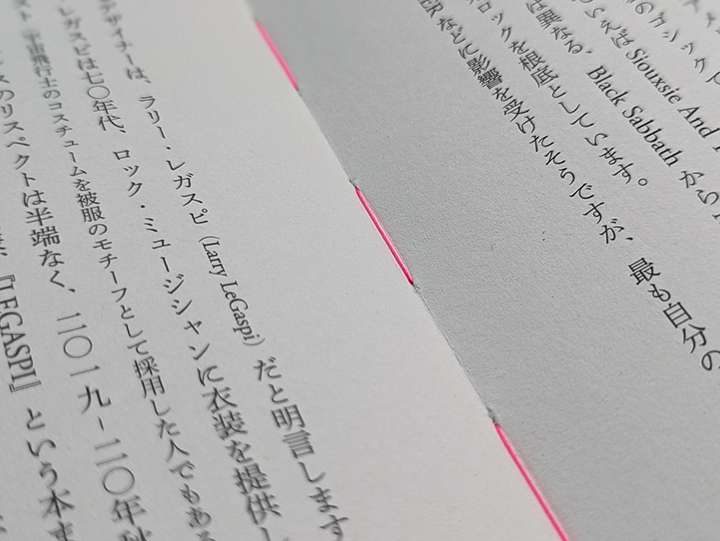 のゴシック
いえば Siouxsie And
は異なる、Black Sabbath から
ロックを根底としています。
などに影響を受けたそうですが、最も自分の
デザイナーは、ラリー・レガスピ（Larry LeGaspi）だと明言します
レガスピは七〇年代、ロック・ミュージシャンに衣装を提供し
スト（宇宙飛行士のコスチュームを被服のモチーフとして採用した人でもある
のリスペクトは半端なく、二〇一九-二〇年秋
『LEGASPI』という本ま